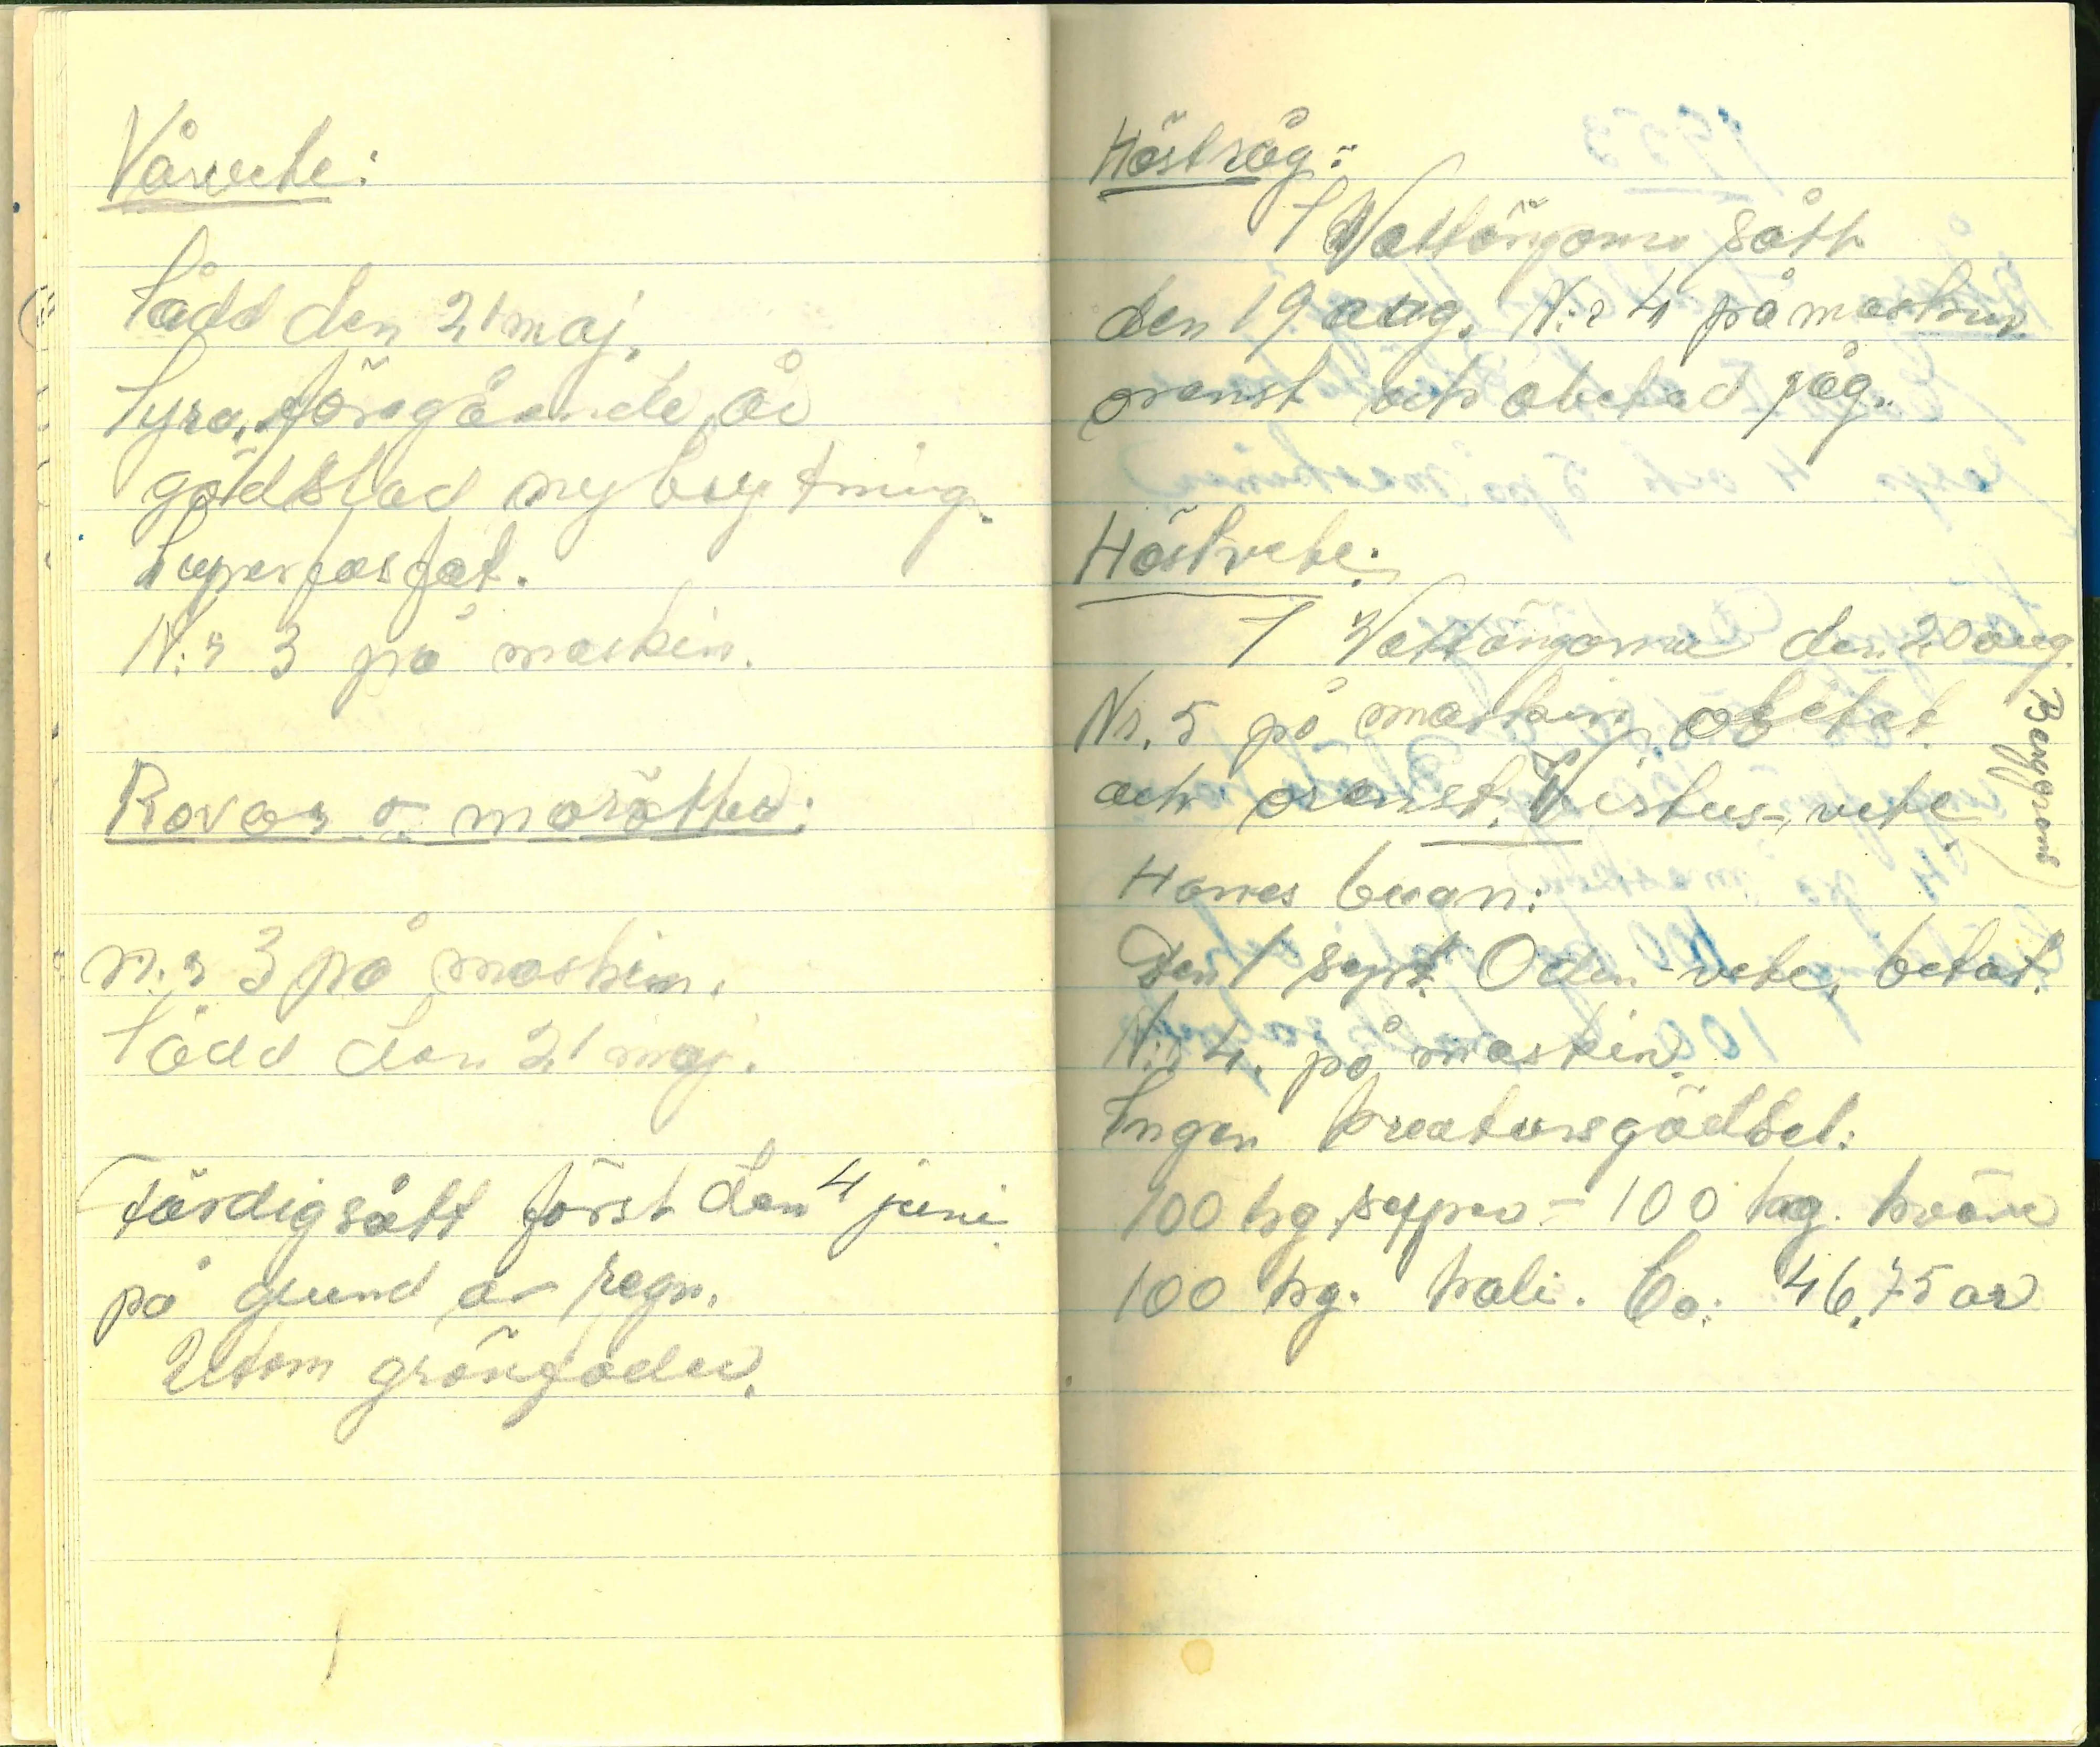 Vårvete:
Sådd den 21 maj.
Fyra, föregående år
gödslad nybrytning.
Superfosfat.
N:r 3 på maskin.
Rovor o morötter:
N:r 3 på maskin.
Sådd den 21 maj.
Färdigsått först den 4 juni
på grund av regn.
Utom grönfoder.
Höstråg:
I Vattängarna sått
den 19 aug. N:r 4 på maskin
orenst och obetad råg.
Höstvete:
I Vattängarna den 20 aug.
Nr. 5 på maskin, obetat
och orenst. Virtus-vete
(Berggrens)
Hannes buan:
Den 1 sept. Odin-vete, betat.
N:r 4. på maskin.
Ingen kreatursgödsel:
100 kg super - 100 kg. kväve
100 kg. kali. Ca: 46,75 ar